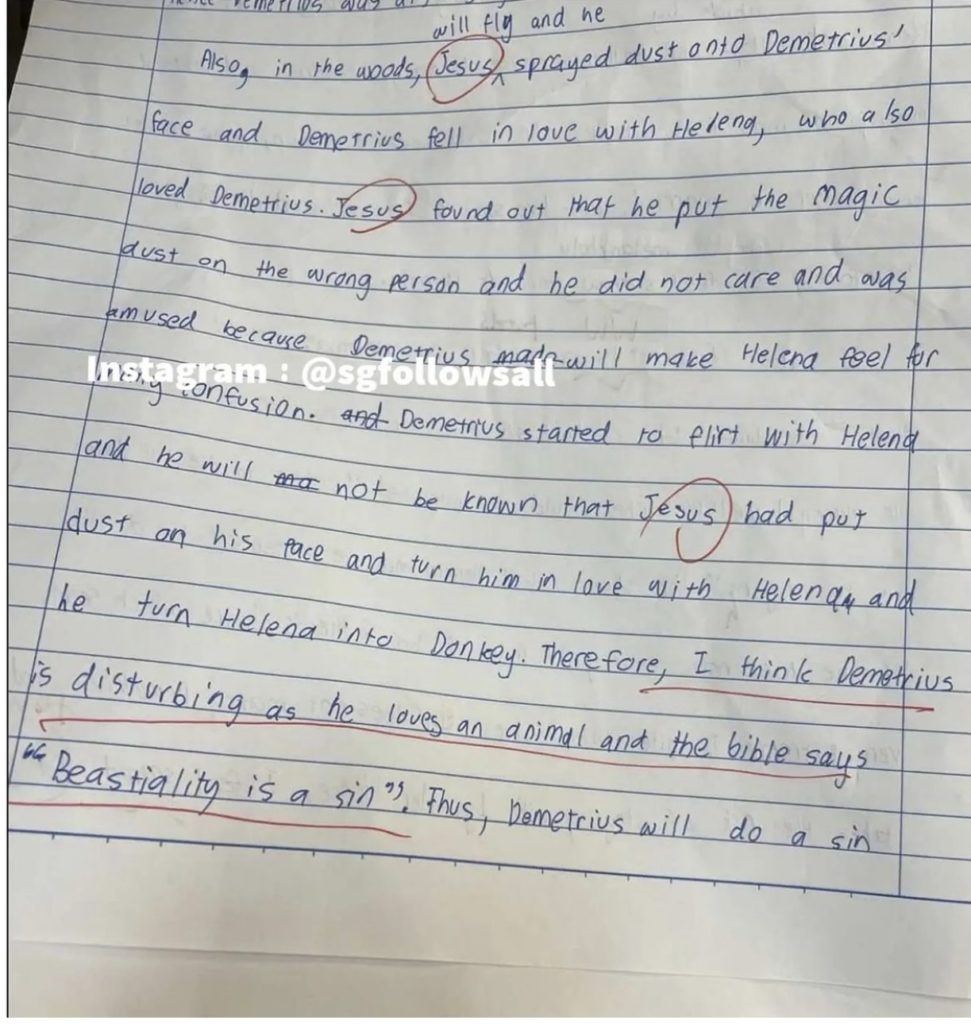 will fly and he
Also, in the woods, Jesus ^ sprayed dust onto Demetrius'
face and Demetrius fell in love with Helena, who also
loved Demetrius. Jesus found out that he put the magic
dust on the wrong person and he did not care and was
amused because Demetrius made will make Helena feel for
Instagram : @sgfollowsall
confusion. and Demetrius started to flirt with Helena
and he will not be known that Jesus had put
dust on his face and turn him in love with Helena, and
he turn Helena into Donkey. Therefore, I think Demetrius
is disturbing as he loves an animal and the bible says
"Beastiality is a sin". Thus, Demetrius will do a sin